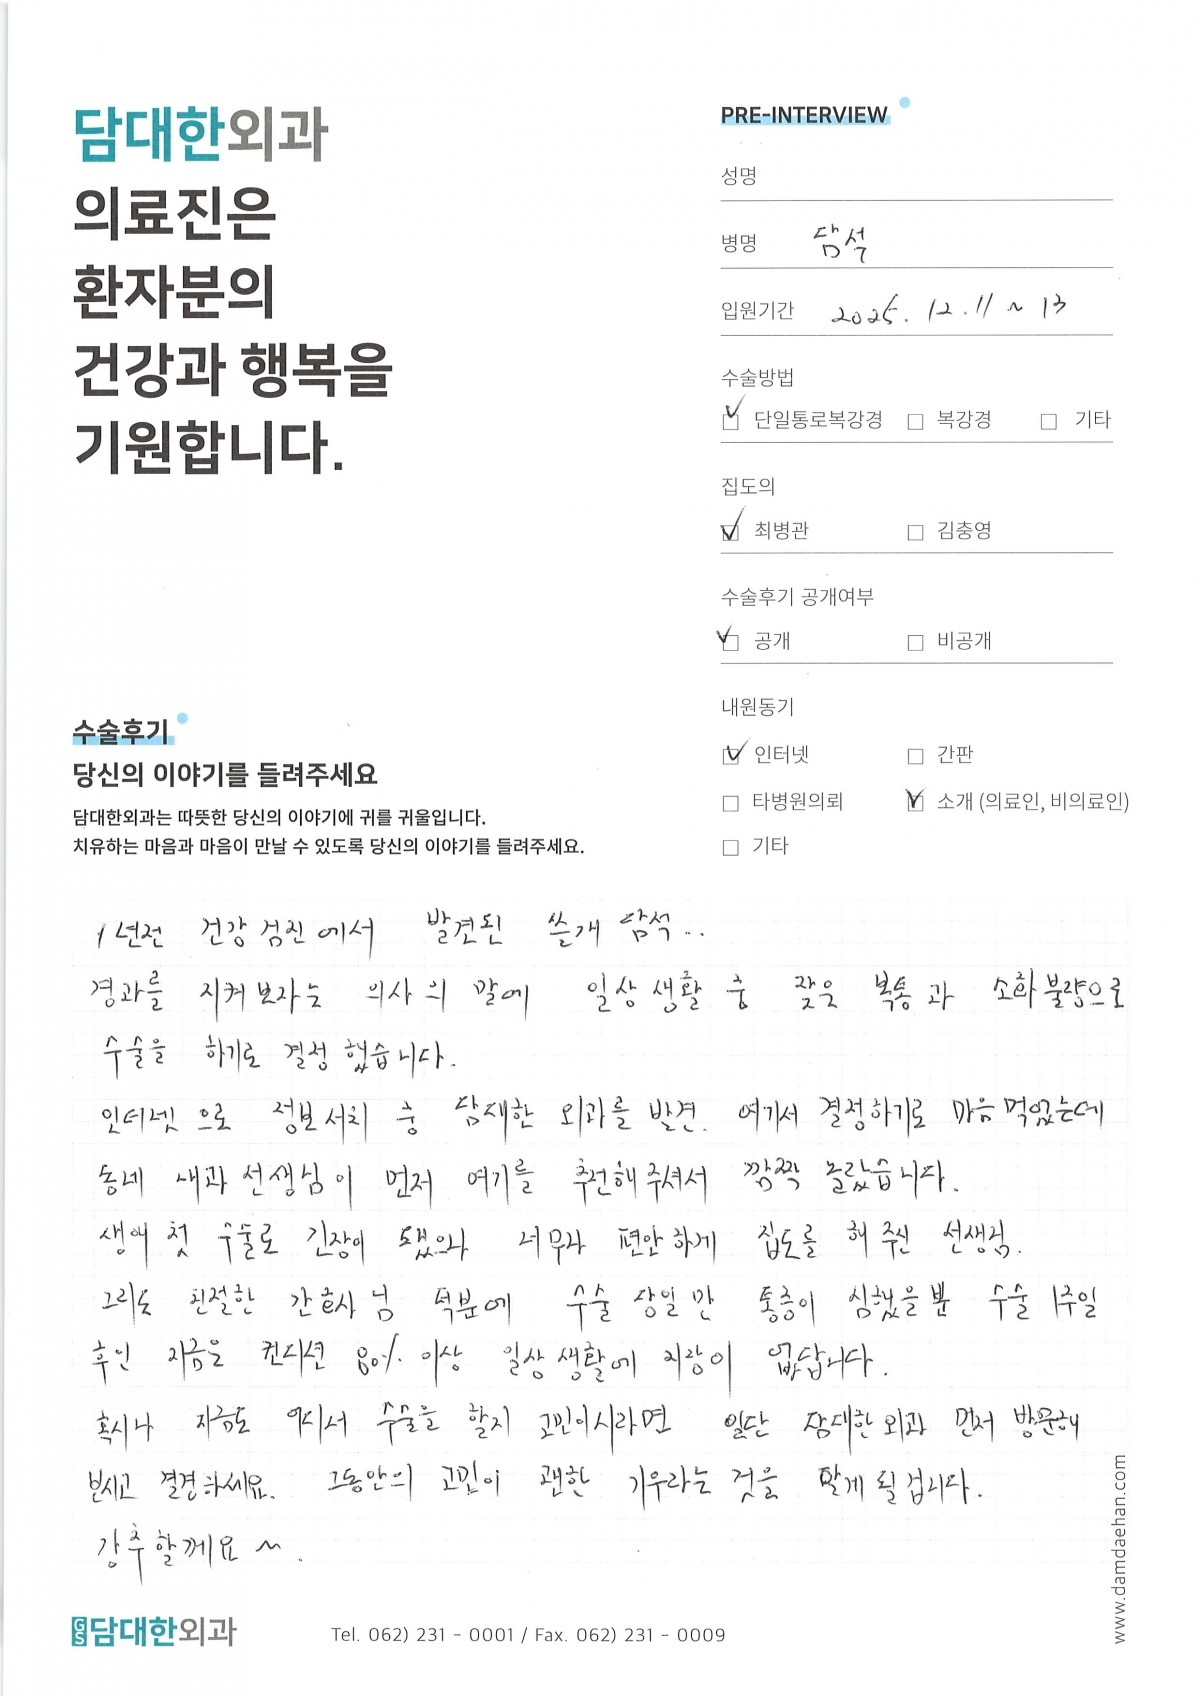 담대한외과
의료진은
환자분의
건강과 행복을
기원합니다.
PRE-INTERVIEW
성명
병명 담석
입원기간 2025. 12. 11 ~ 13
수술방법
단일통로복강경 복강경 기타
집도의
최병관 김충영
수술후기 공개여부
공개 비공개
내원동기
인터넷 간판
타병원의뢰 소개 (의료인, 비의료인)
기타
수술후기
당신의 이야기를 들려주세요
담대한외과는 따뜻한 당신의 이야기에 귀를 귀울입니다.
치유하는 마음과 마음이 만날 수 있도록 당신의 이야기를 들려주세요.
1년전 건강검진에서 발견된 쓸개 담석..
경과를 지켜보자는 의사의 말에 일상생활 중 잦은 복통과 소화불량으로
수술을 하기로 결정했습니다.
인터넷으로 정보서치 중 담대한 외과를 발견. 여기서 결정하기로 마음먹었는데
동네 내과 선생님이 먼저 여기를 추천해주셔서 깜짝 놀랐습니다.
생애 첫 수술로 긴장이 됐으나 너무나 편안하게 집도를 해 주신 선생님.
그리도 친절한 간호사님 덕분에 수술 당일만 통증이 심했을뿐 수술 1주일
후인 지금은 컨디션 80% 이상 일상생활에 지장이 없답니다.
혹시나 지금도 어디서 수술을 할지 고민이시라면 일단 담대한외과 먼저 방문해
보시고 결정하세요. 그동안의 고민이 괜한 기우라는 것을 알게 될 겁니다.
강추할께요 ~.
GS 담대한외과
Tel. 062) 231 - 0001 / Fax. 062) 231 - 0009
www.damdaehan.com